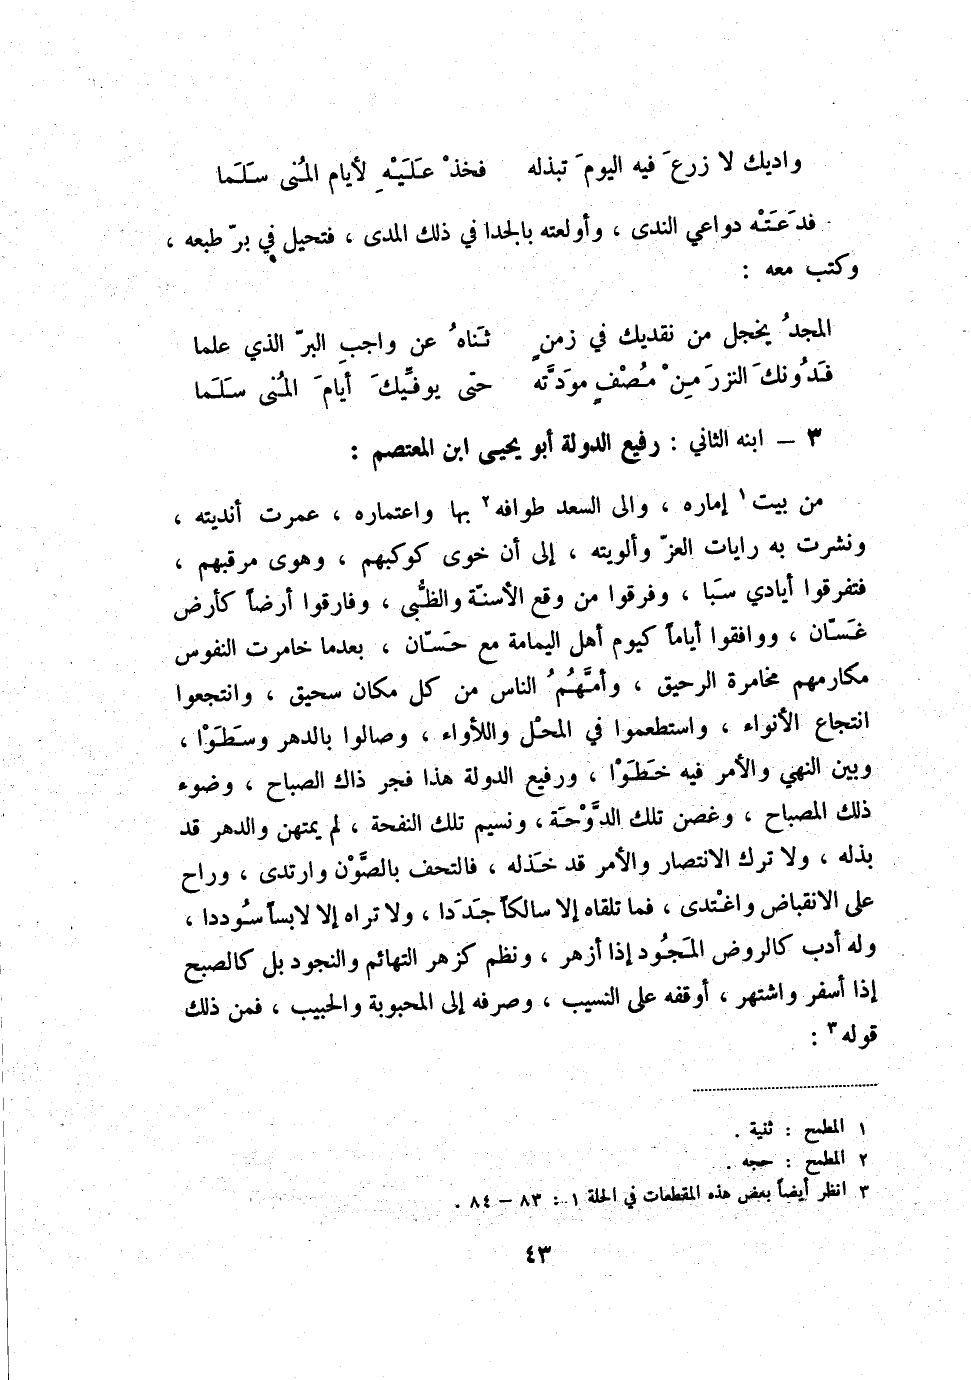 واديك لا زرعَ فيه اليومَ تبذله    فخذْ عَلَيْهِ لأيام المُنى سَلَما
فدَعَتْه دواعي الندى ، وأولعته بالجدا في ذلك المدى ، فتحيل في برّ طبعه ،
وكتب معه :
المجدُ يخجل من نقديك في زمنٍ    ثَناهُ عن واجبِ البرّ الذي علما
فَدُونكَ النزرَ مِنْ مُصْفٍ موَدَّته    حتى يوفِّيكَ أيامَ المُنى سَلَما
٣ – ابنه الثاني : رفيع الدولة أبو يحيى ابن المعتصم :
من بيت١ إماره ، والى السعد طوافه٢ بها واعتماره ، عمرت أنديته ،
ونشرت به رايات العزّ وألويته ، إلى أن خوى كوكبهم ، وهوى مرقبهم ،
فتفرقوا أيادي سَبا ، وفرقوا من وقع الأسنّة والظُّبى ، وفارقوا أرضاً كأرض
غَسّان ، ووافقوا أياماً كيوم أهل اليمامة مع حَسّان ، بعدما خامرت النفوس
مكارمهم مخامرة الرحيق ، وأمَّهُمُ الناس من كل مكان سحيق ، وانتجعوا
انتجاع الأنواء ، واستطعموا في المحْل واللأواء ، وصالوا بالدهر وسَطَوْا ،
وبين النهي والأمر فيه خَطَوْا ، ورفيع الدولة هذا فجر ذاك الصباح ، وضوء
ذلك المصباح ، وغصن تلك الدَّوْحَة ، ونسيم تلك النفحة ، لم يمتهن والدهر قد
بذله ، ولا ترك الانتصار والأمر قد خَذله ، فالتحف بالصَّوْن وارتدى ، وراح
على الانقباض واغْتدى ، فما تلقاه إلا سالكاً جَدَدا ، ولا تراه إلا لابساً سُوددا ،
وله أدب كالروض المَجُود إذا أزهر ، ونظم كزهر التهائم والنجود بل كالصبح
إذا أسفر واشتهر ، أوقفه على النسيب ، وصرفه إلى المحبوبة والحبيب ، فمن ذلك
قوله٣ :
١ المطمح : ثنية .
٢ المطمح : حجه .
٣ انظر أيضاً بعض هذه المقطعات في الحلة ١ : ٨٣ – ٨٤ .
٤٣